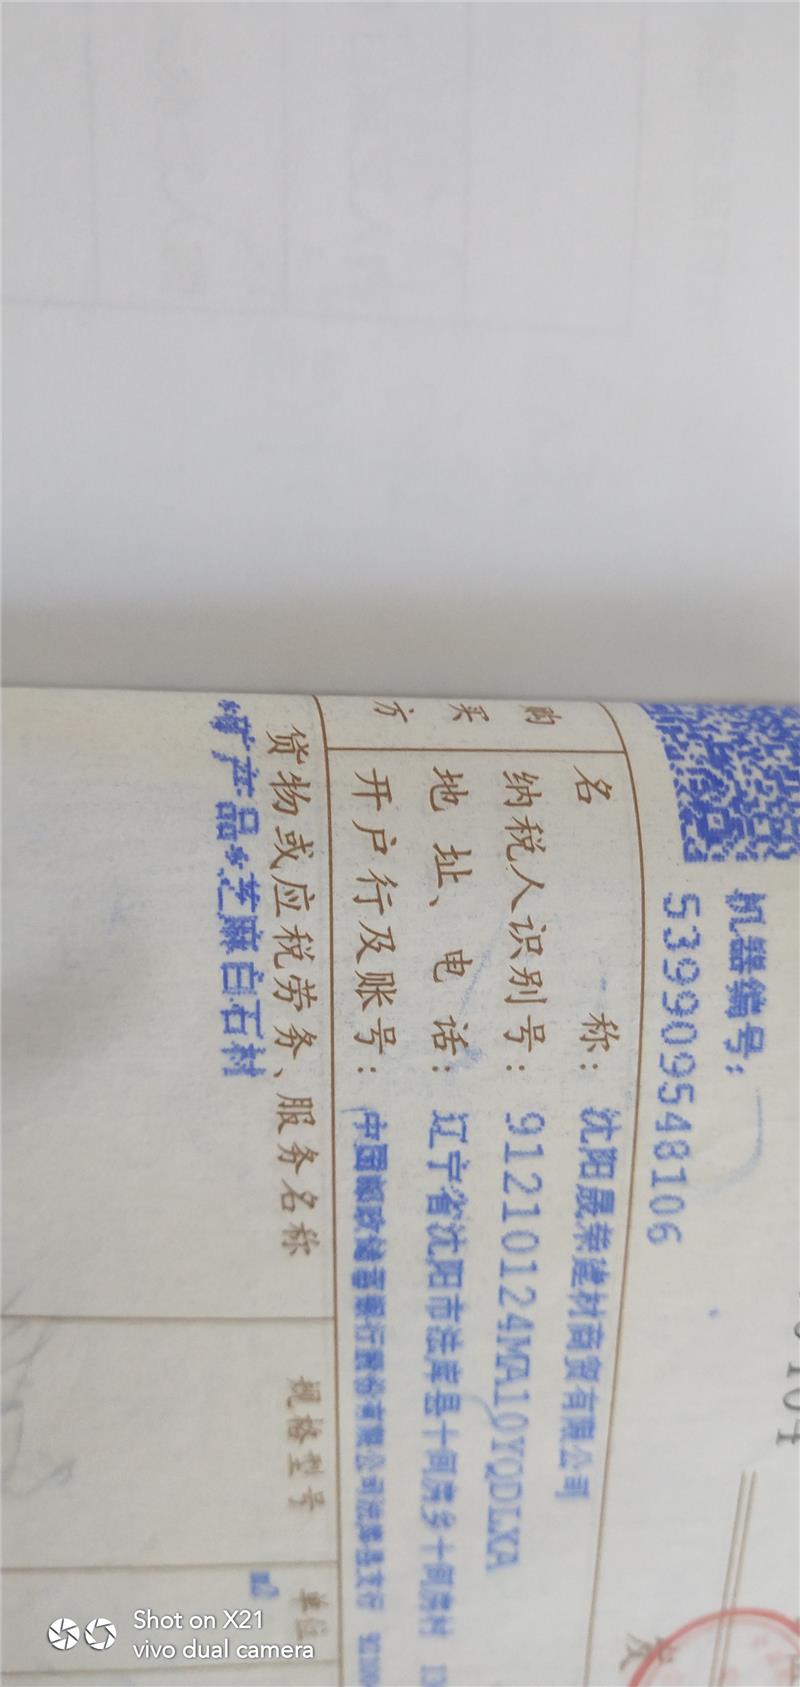 机器编号:
539909548106
购买方
名称: 沈阳晟荣建材商贸有限公司
纳税人识别号: 91210124MA10YQDLXA
地址、电话: 辽宁省沈阳市法库县十间房乡十间房村 13
开户行及账号: 中国邮政储蓄银行股份有限公司法库县支行
货物或应税劳务、服务名称 规格型号 单位
*矿产品*芝麻白石材 m2
发
Shot on X21
vivo dual camera